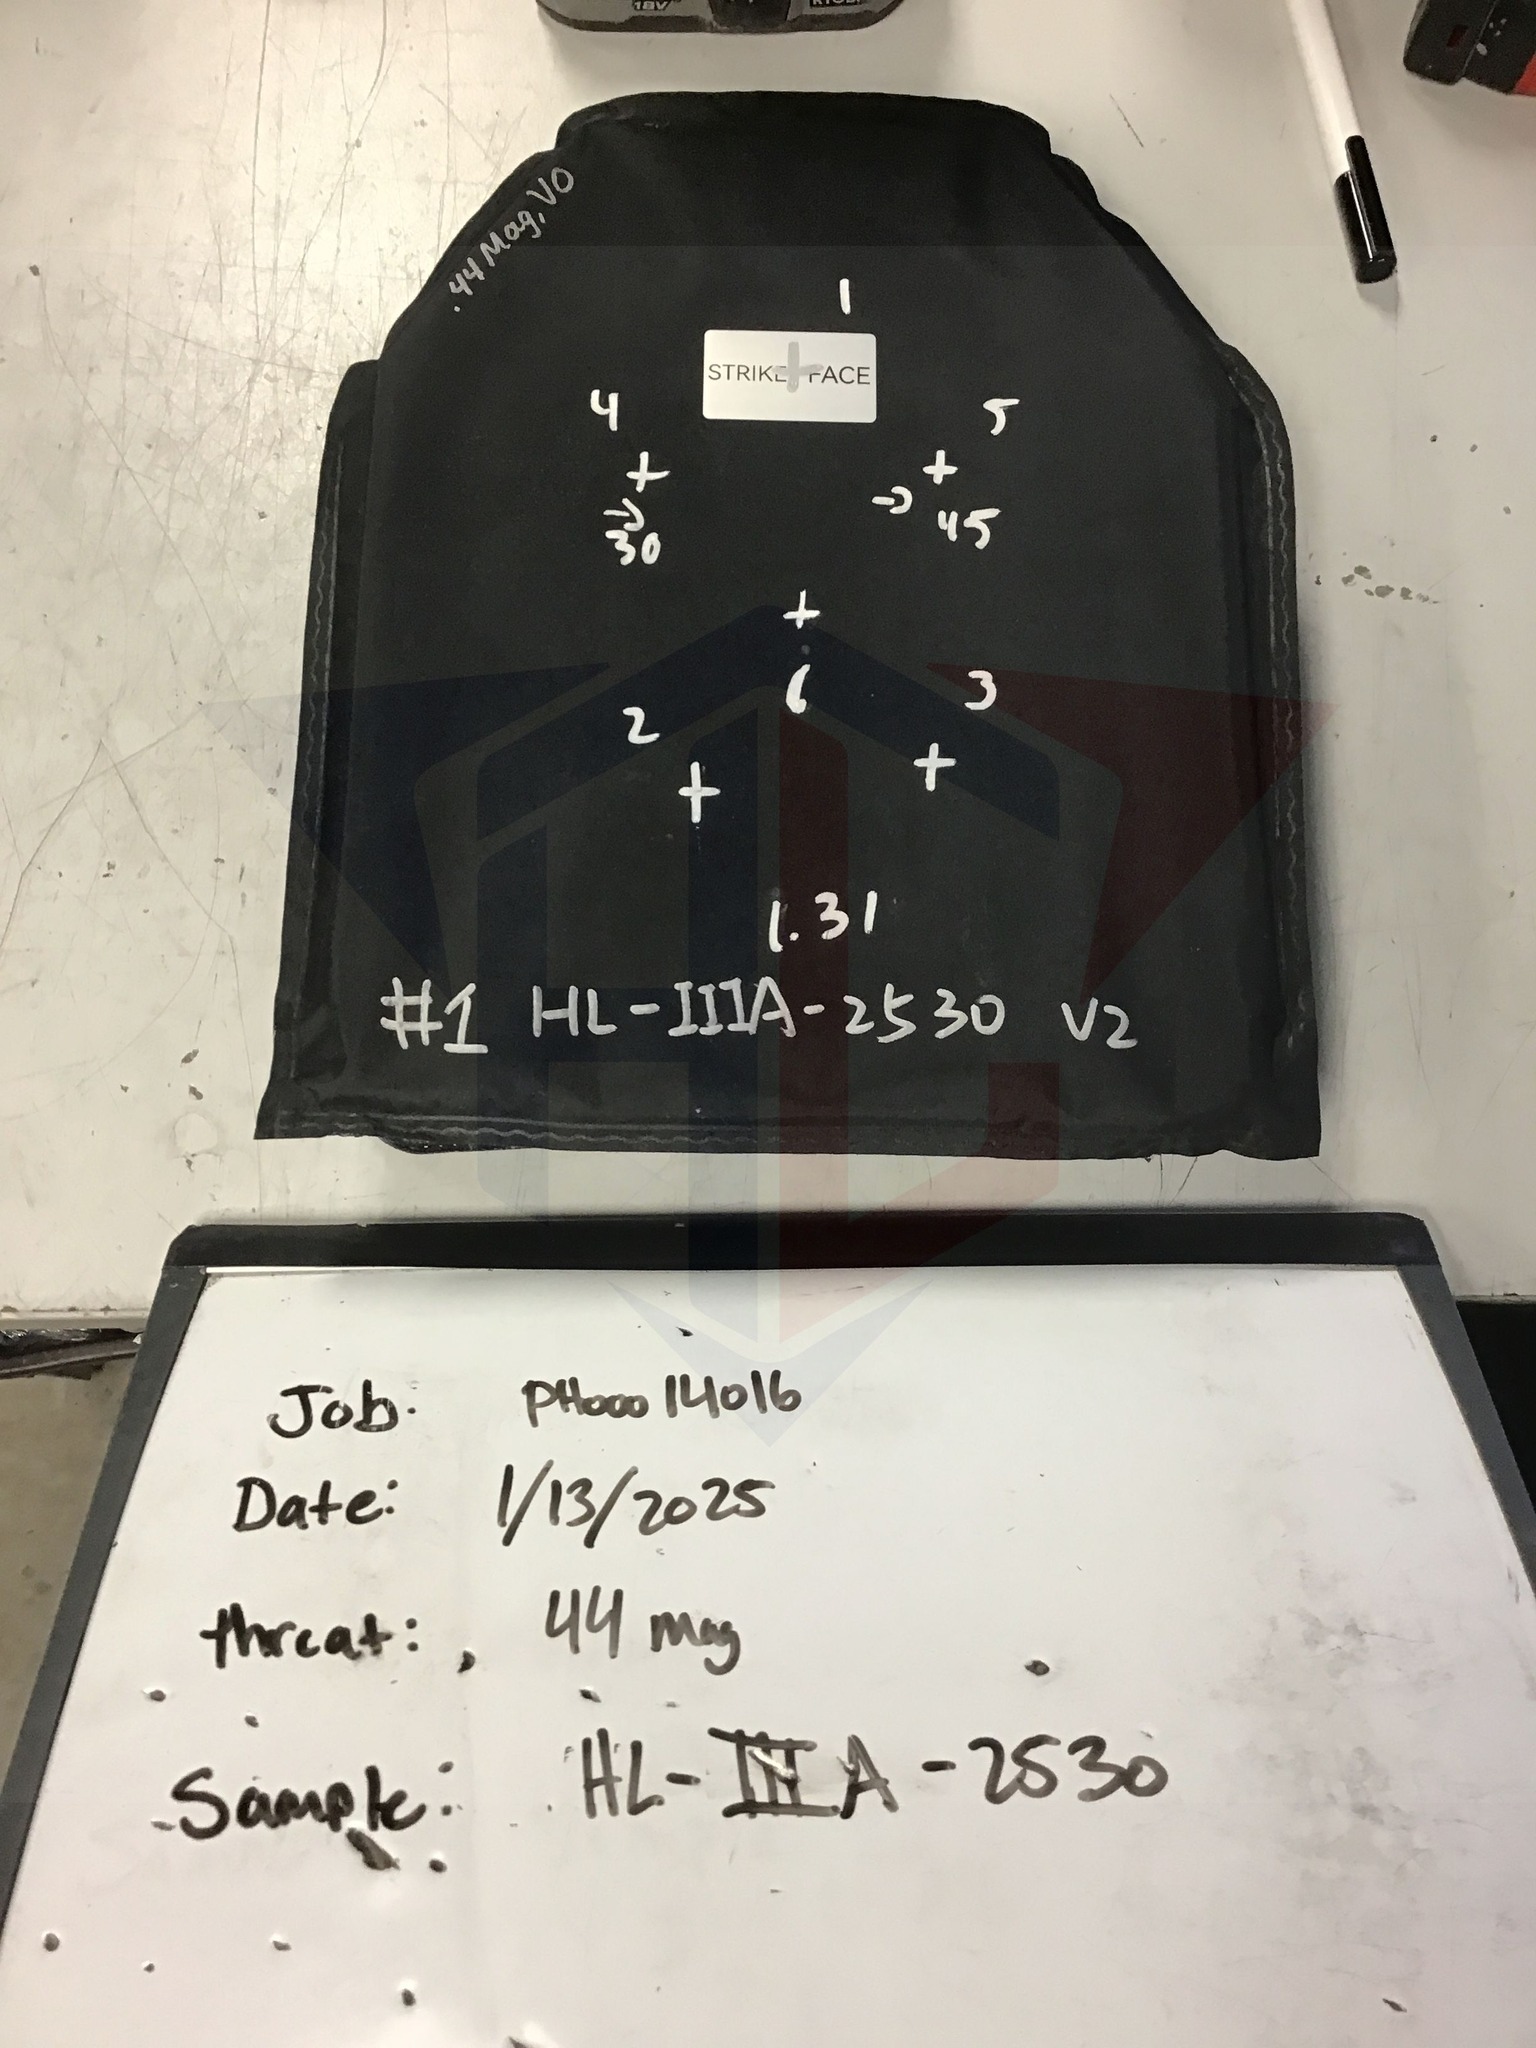 18V
.44 Mag, V0
1
STRIKE FACE
4
5
30
45
6
2
3
1.31
#1 HL-IIIA-2530 V2
Job: PH00014016
Date: 1/13/2025
threat: 44 mag
Sample: HL-IIIA-2530